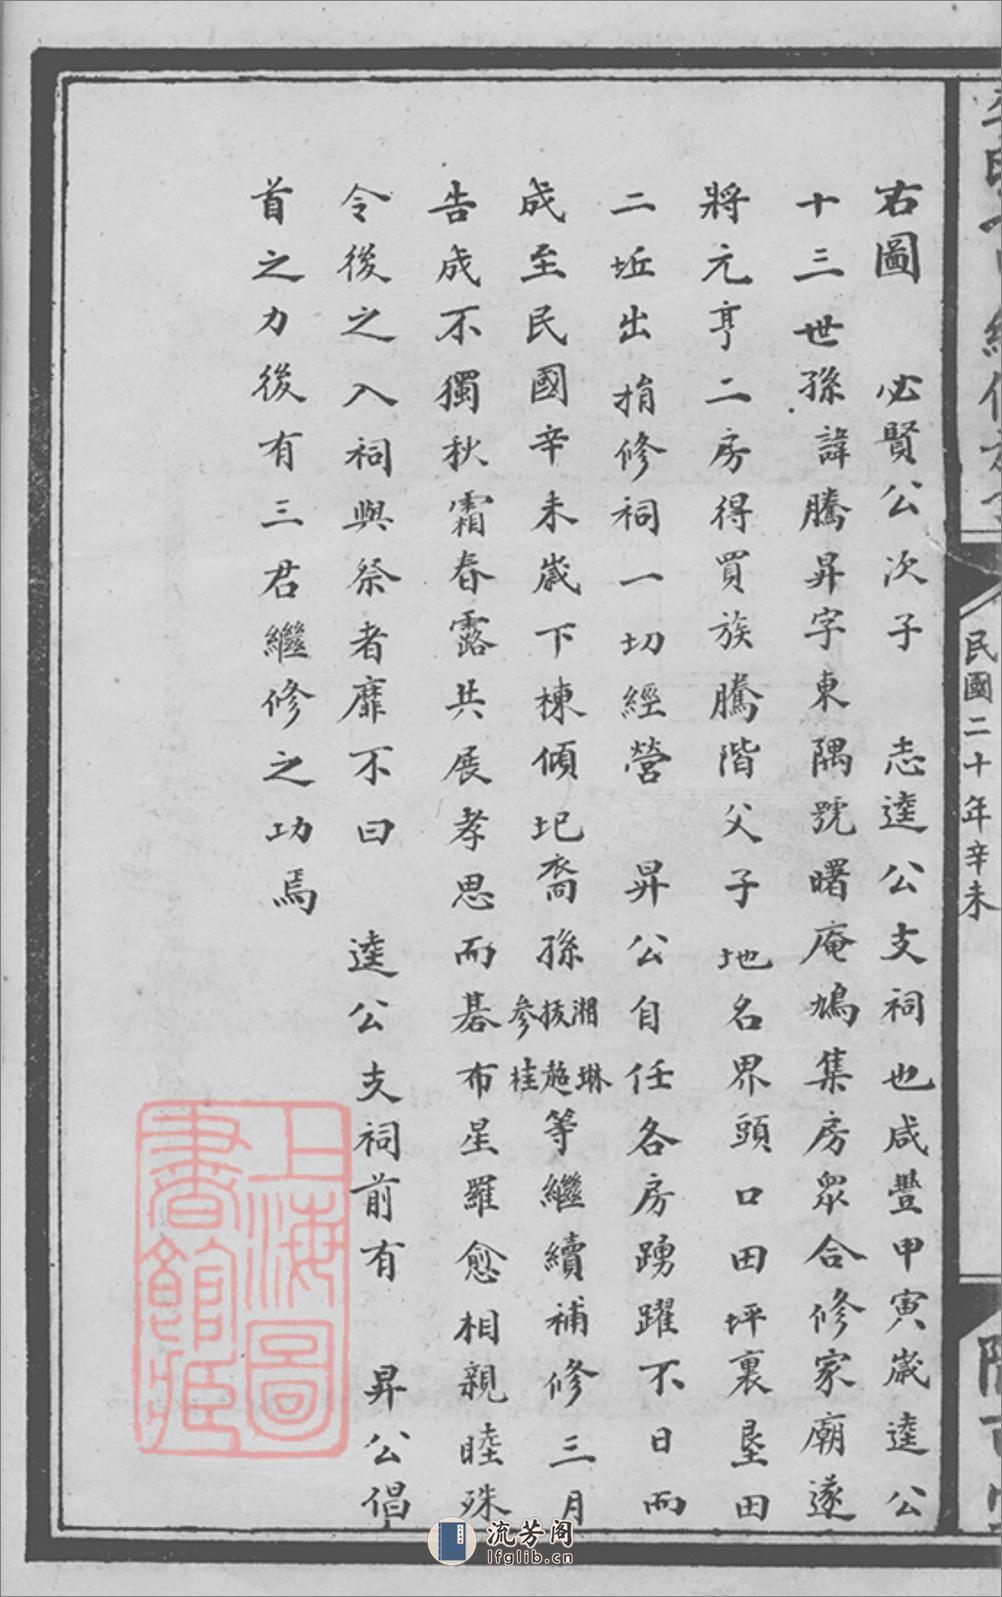 右圖 必賢公次子 志達公支祠也咸豐甲寅歲達公
十三世孫諱騰昇字東隅號曙庵鳩集房眾合修家廟遂
將元亨二房得買族騰階父子地名界頭口田坪裏垦田
二坵出捐修祠一切經營 昇公自任各房踴躍不日而
成至民國辛未歲下棟傾圮裔孫湘琳拔超參桂等繼續補修三月
告成不獨秋霜春露共展孝思而碁布星羅愈相親睦殊
令後之入祠與祭者靡不曰 達公支祠前有 昇公倡
首之力後有三君繼修之功焉
民國二十年辛未
上海圖書館藏
流芳阁
lfglib.cn